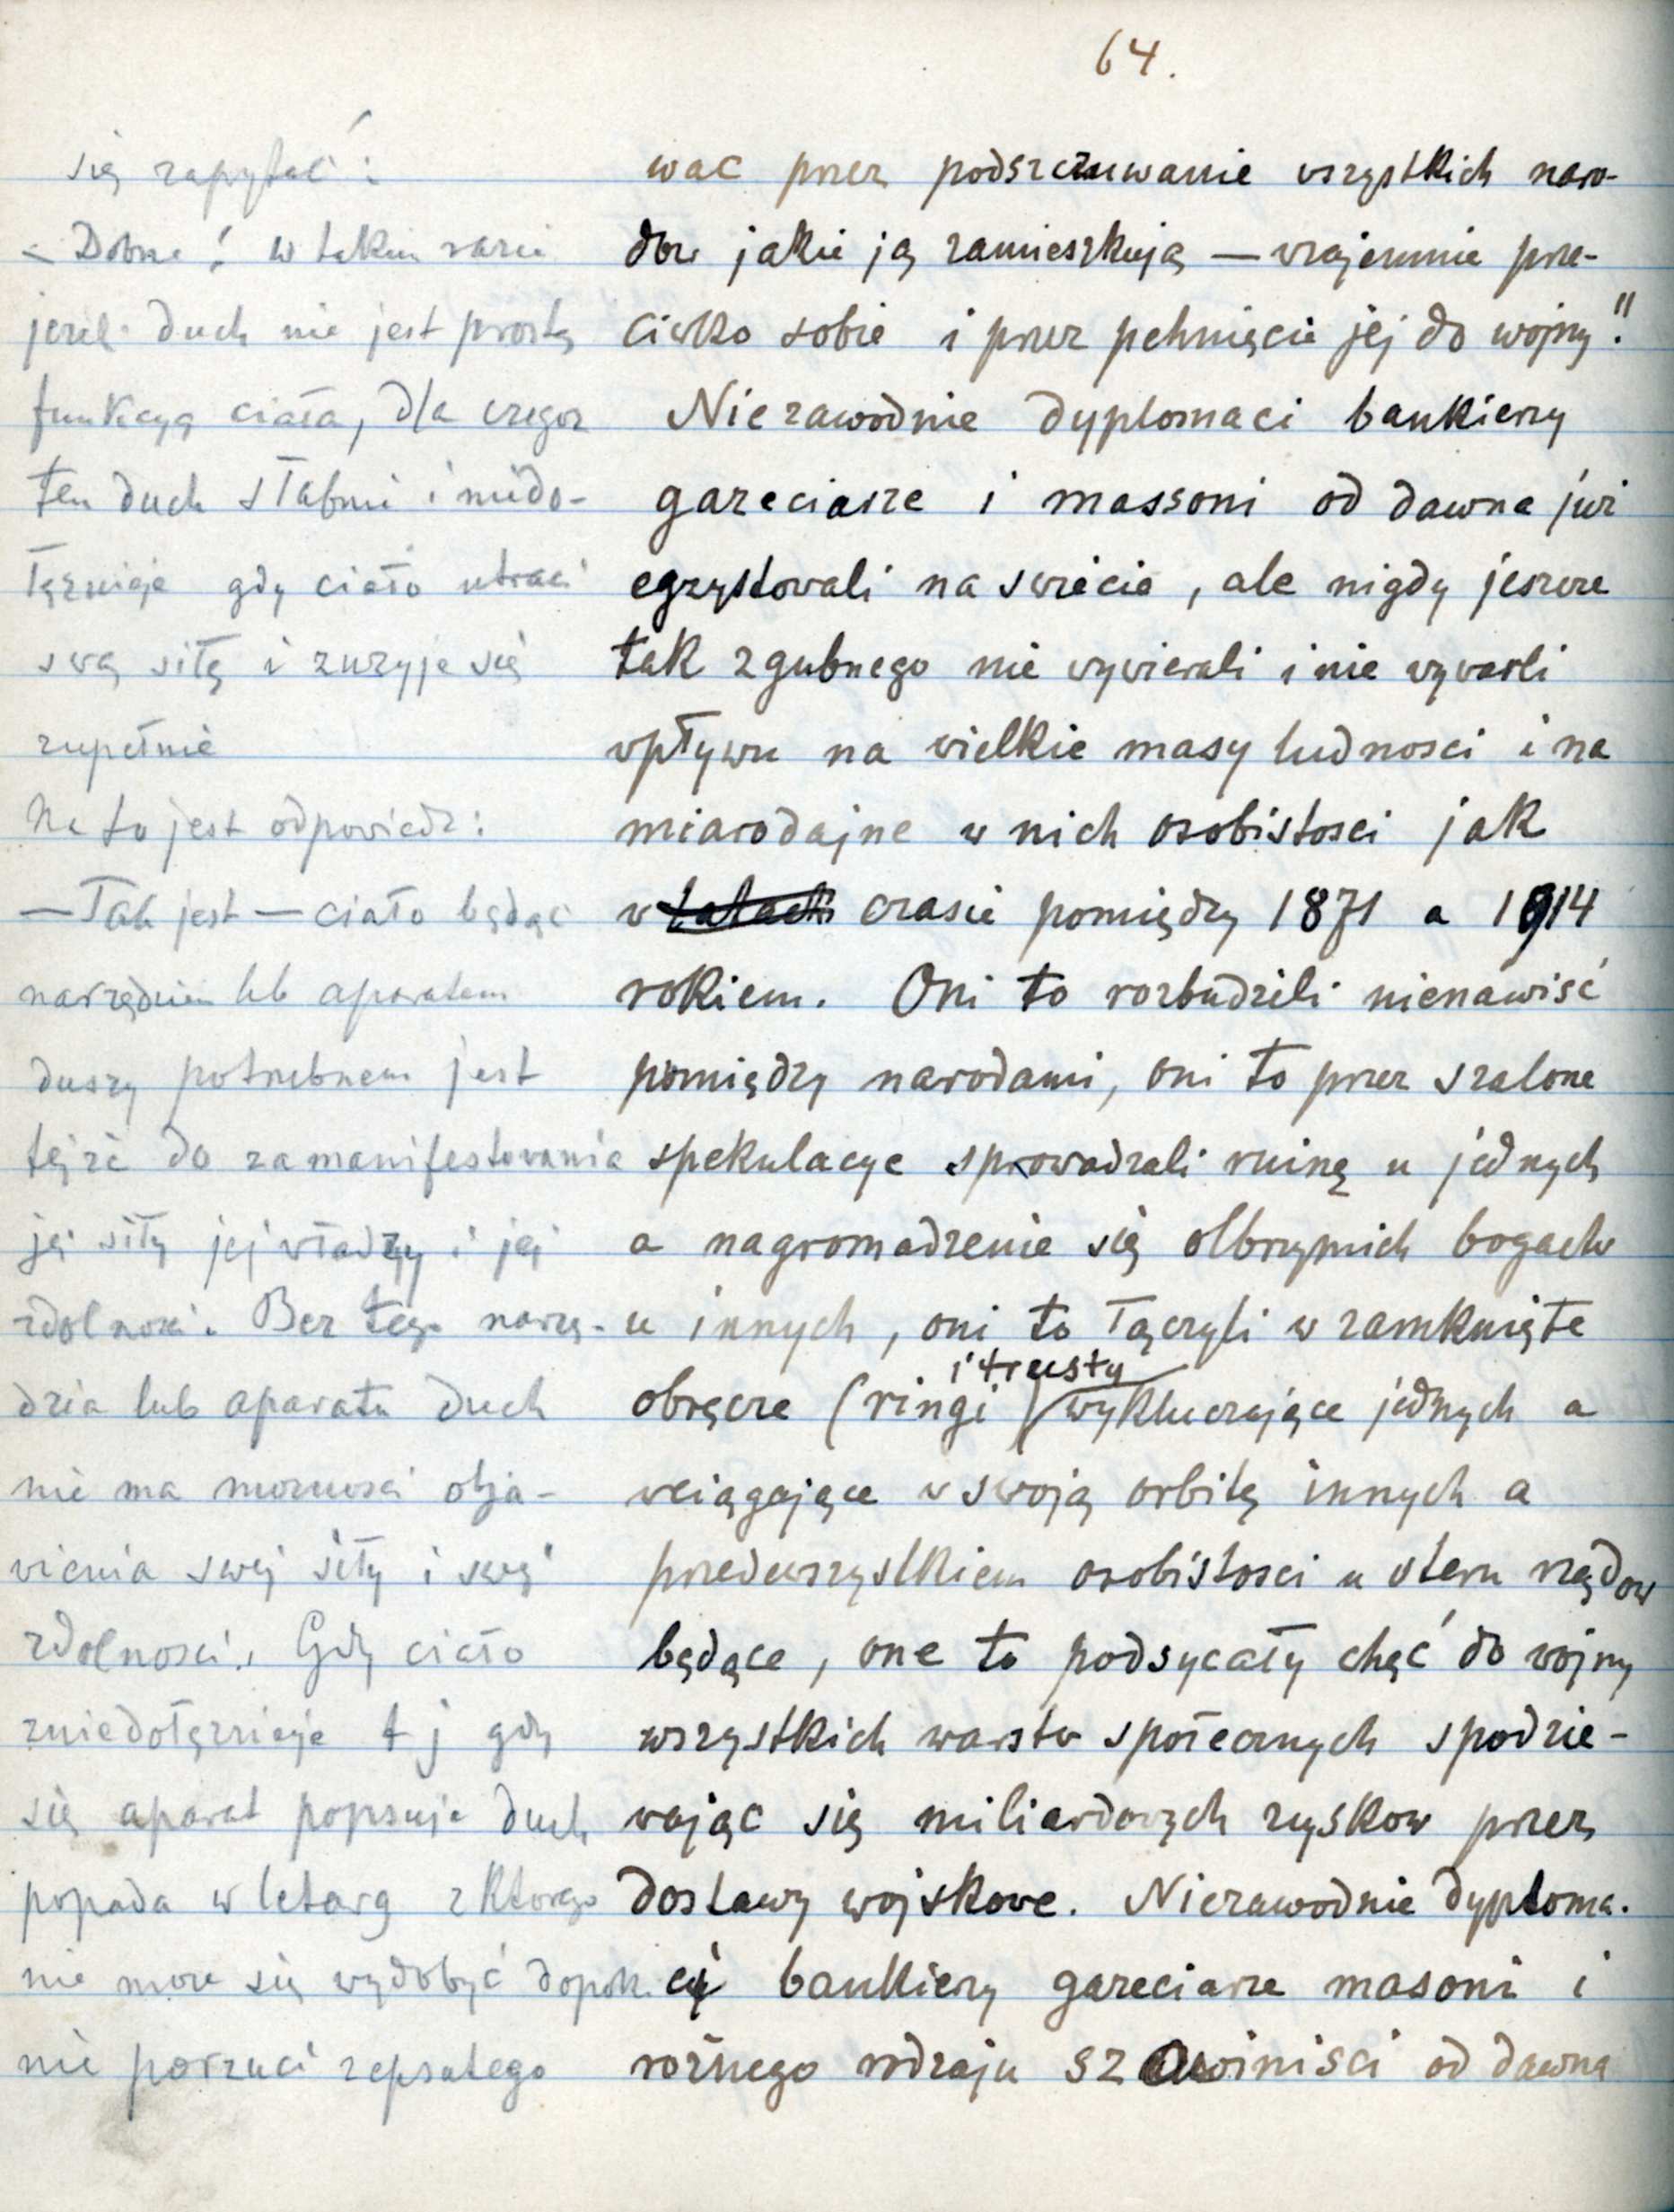 64.
się zapytać:
– Dobrze! w takim razie
jezeli duch nie jest prostą
funkcyą ciała, dla czegoz
ten duch słabnie i niedo-
łęznieje gdy ciało utraci
swą siłę i zuzyje się
zupełnie
Na to jest odpowiedz:
— Tak jest — ciało będąc
narzędziem lub aparatem
duszy potrzebnem jest
tejze do zamanifestowania
jej siły jej władzy i jej
zdolnosci. Bez tego narzę-
dzia lub aparatu duch
nie ma moznosci obja-
wienia swej siły i swej
zdolnosci. Gdy ciało
zniedołęznieje t j gdy
się aparat popsuje duch
popada w letarg z ktorego
nie moze się wydobyć dopoki
nie porzuci zepsutego
wac przez podszczuwanie wszystkich naro-
dow jakie ją zamieszkują — wzajemnie prze-
ciwko sobie i przez pchnięcie jej do wojny."
Niezawodnie dyplomaci bankierzy
gazeciarze i massoni od dawna juz
egzystowali na swiecie, ale nigdy jeszcze
tak zgubnego nie wywierali i nie wywarli
wpływu na wielkie masy ludnosci i na
miarodajne w nich osobistosci jak
w latach czasie pomiędzy 1871 a 1914
rokiem. Oni to rozbudzili nienawisć
pomiędzy narodami, oni to przez szalone
spekulacye sprowadzali ruinę u jednych
a nagromadzenie się olbrzymich bogactw
u innych, oni to łączyli w zamknięte
obręcze (ringi i trusty) wykluczające jednych a
wciągające w swoją orbitę innych a
przedewszystkiem osobistosci u steru rządow
będące, one to podsycały chęć do wojny
wszystkich warstw społecznych spodzie-
wając się miliardowych zyskow przez
dostawy wojskowe. Niezawodnie dyploma-
ci bankierzy gazeciarze masoni i
roznego rodzaju szowinisci od dawna